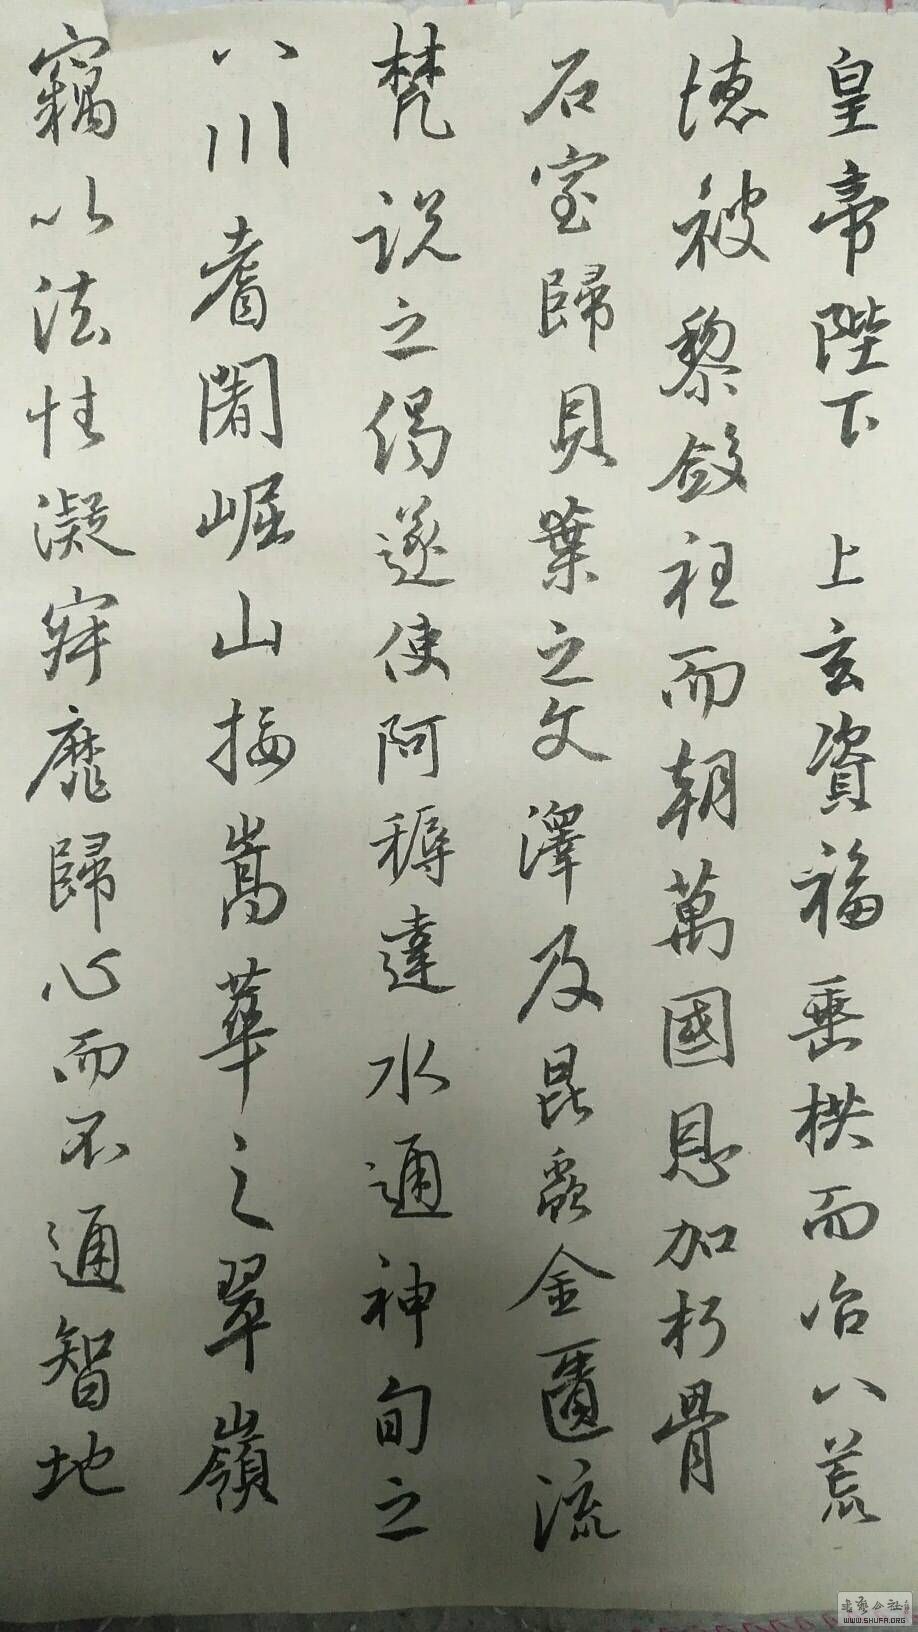 皇帝陛下上玄資福垂拱而治八荒
德被黎斂衽而朝萬國恩加朽骨
石室歸貝葉之文澤及昆蟲金匱流
梵說之偈遂使阿耨達水通神甸之
八川耆闍崛山接嵩華之翠嶺
竊以法性凝寂靡歸心而不通智地
WWW.SHUFA.ORG